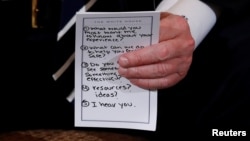 THE WHITE HOUSE
① What would you
most want me
to know about your
experience?
② What can we do
to help you feel
safe?
③ Do you
see some
Something
effective?
④ resources?
ideas?
⑤ I hear you.
Reuters